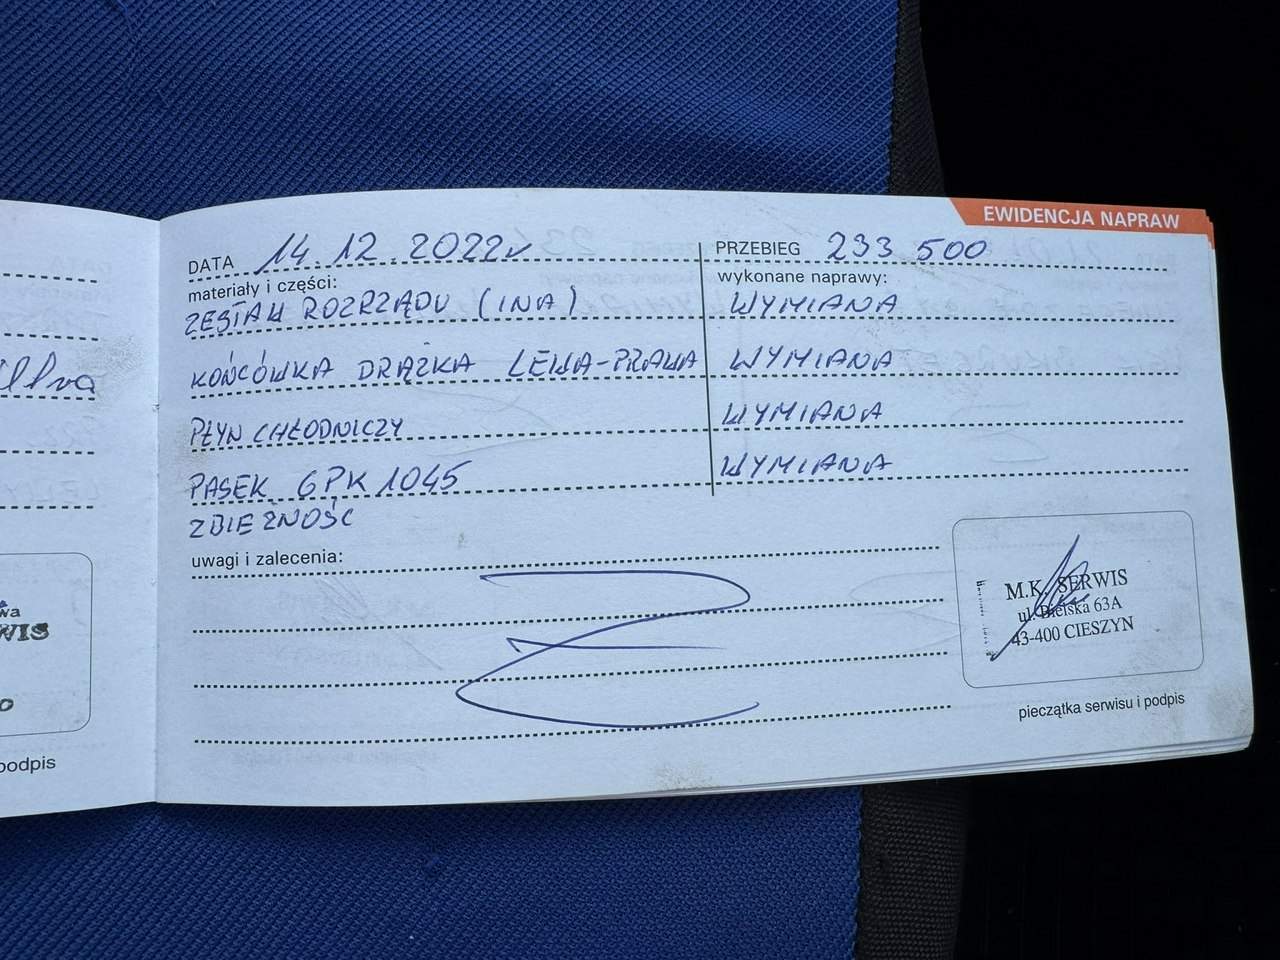 EWIDENCJA NAPRAW
DATA 14.12.2022r PRZEBIEG 233 500
materiały i części: wykonane naprawy:
ZESTAW ROZRZĄDU (INA) WYMIANA
KOŃCÓWKA DRĄŻKA LEWA-PRAWA WYMIANA
PŁYN CHŁODNICZY WYMIANA
PASEK 6PK1045 WYMIANA
ZBIEŻNOŚĆ
uwagi i zalecenia:
M.K. SERWIS
ul. Bielska 63A
43-400 CIESZYN
pieczątka serwisu i podpis